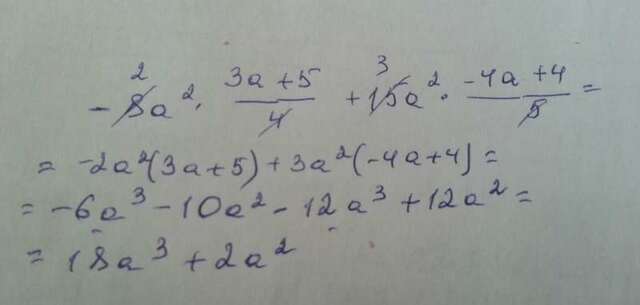 -8a²· (3a+5)/4 + 15a²· (-4a+4)/5 =
= -2a²(3a+5) + 3a²(-4a+4) =
= -6a³ - 10a² - 12a³ + 12a² =
= 18a³ + 2a²